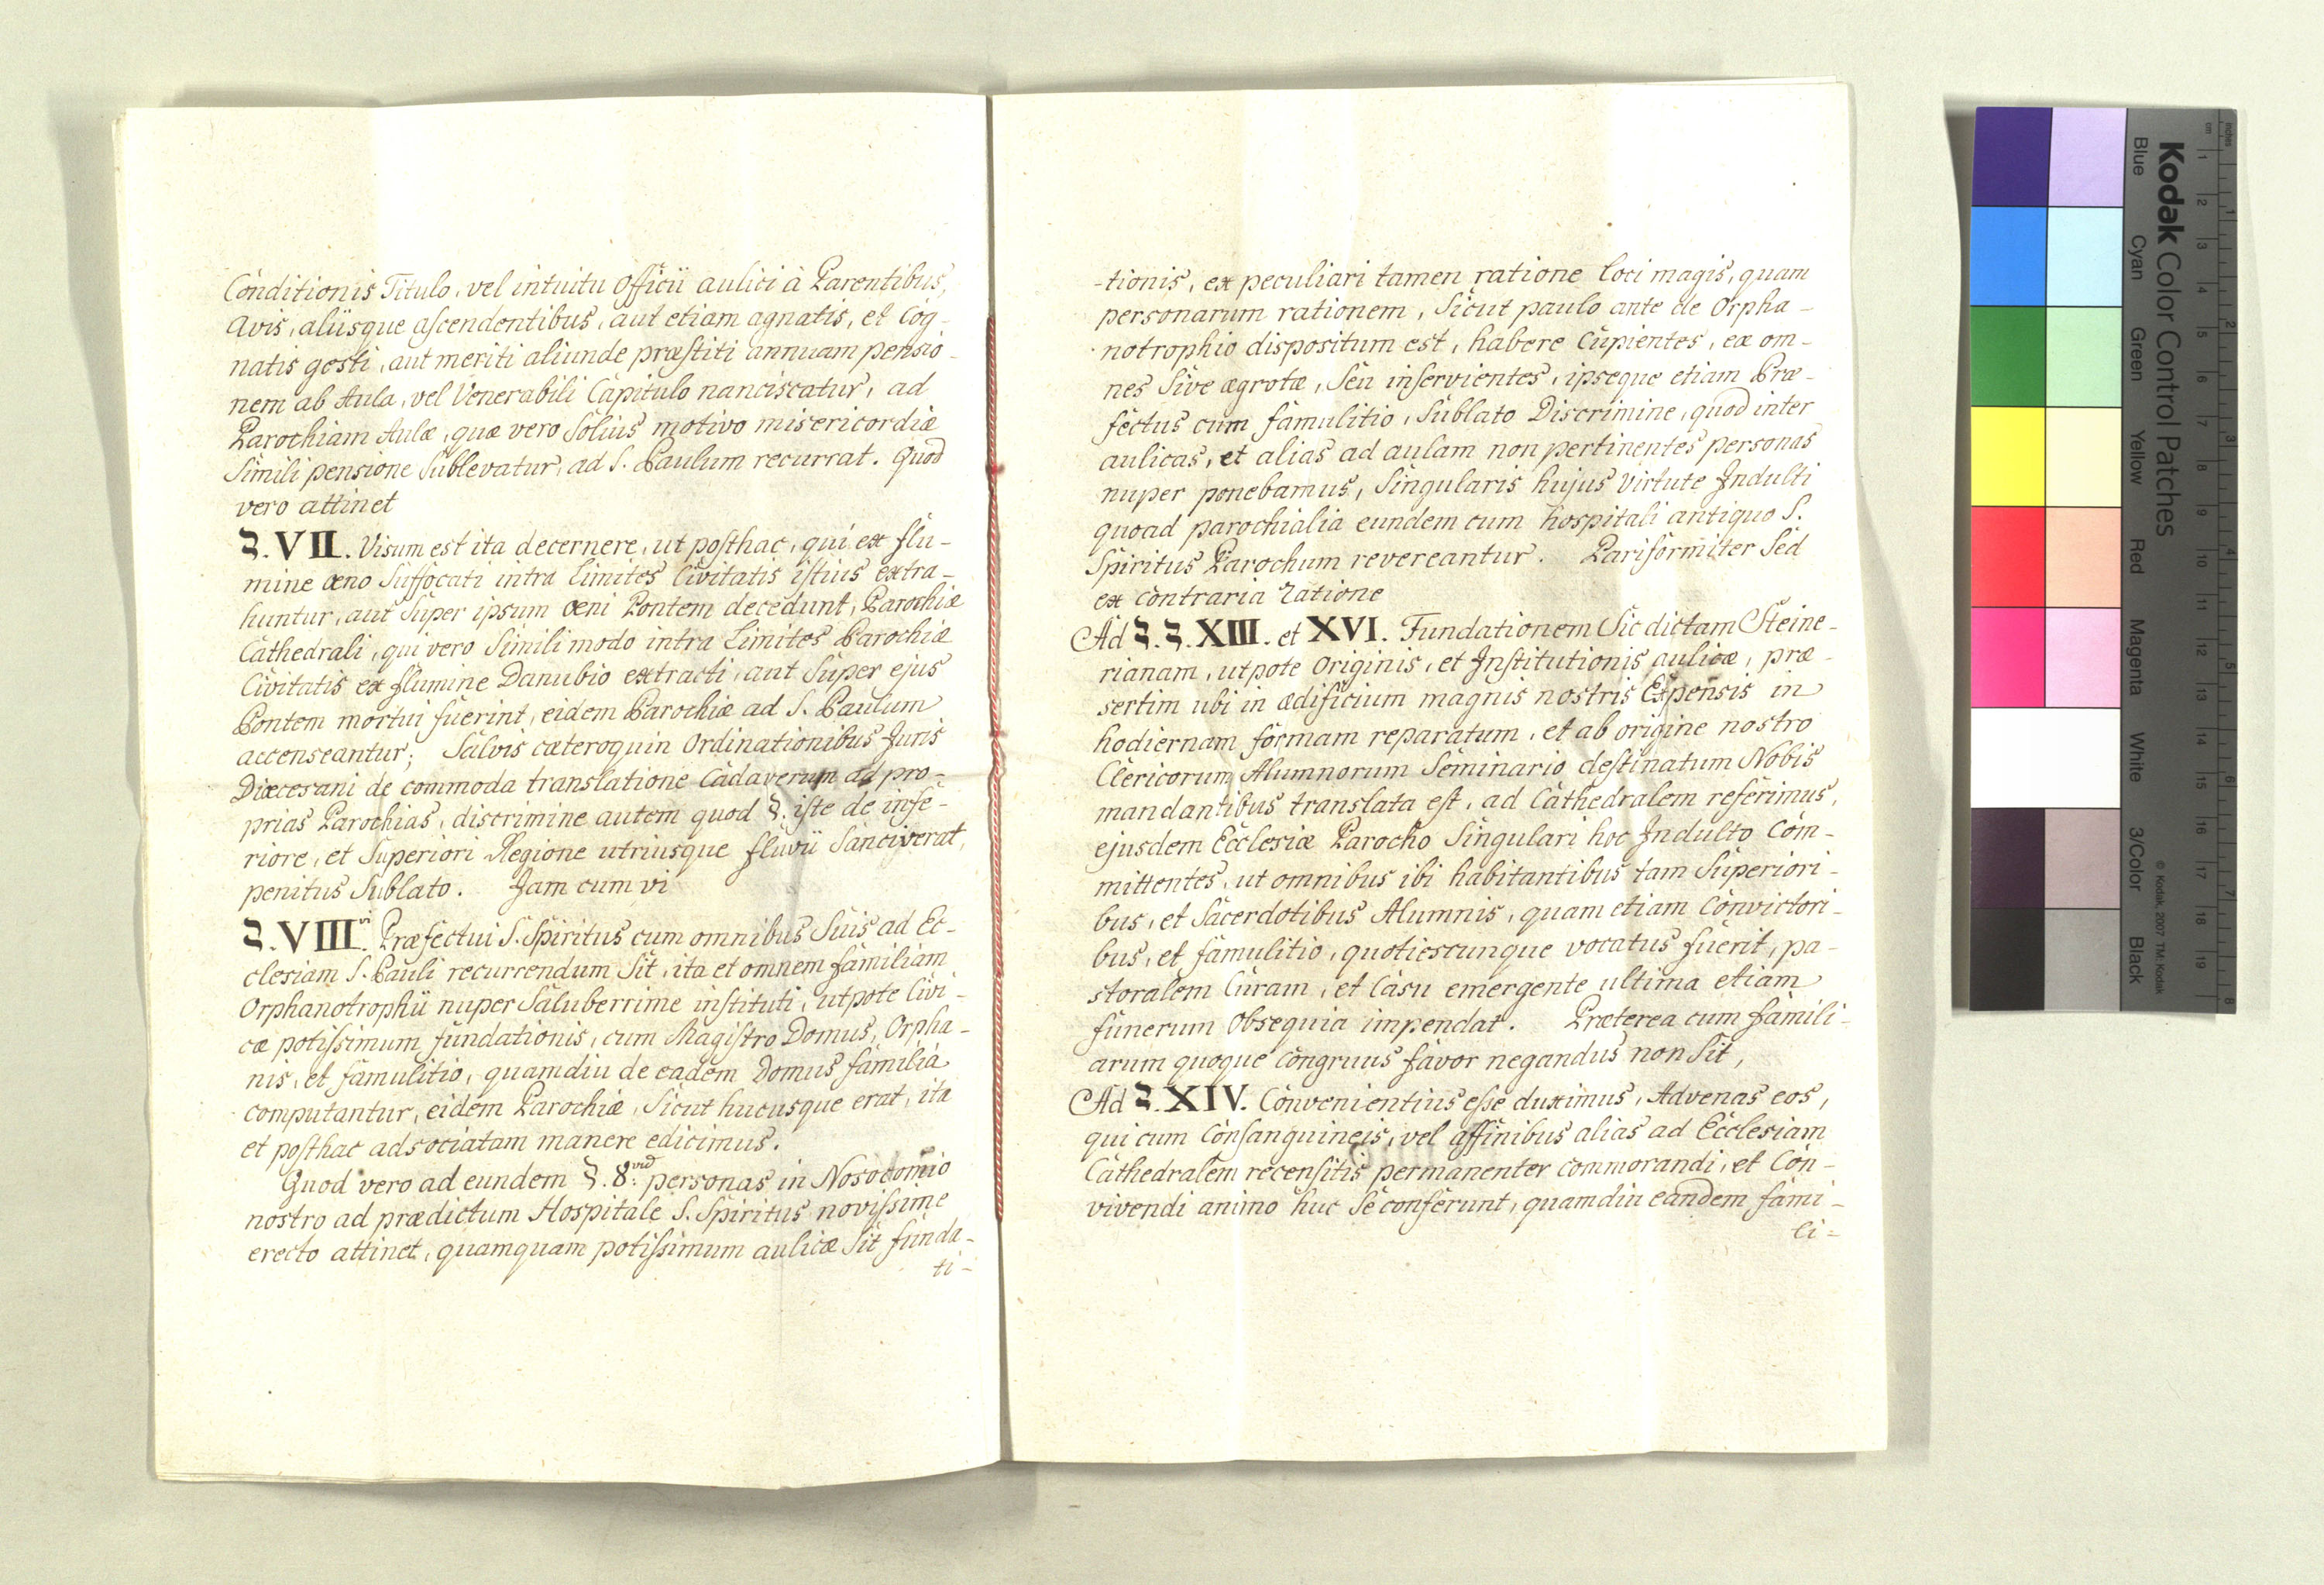 Conditionis Titulo, vel intuitu Officii aulici à Parentibus,
Avis, aliisque ascendentibus, aut etiam agnatis, et Cog-
natis gesti, aut meriti aliunde præstiti annuam pensio-
nem ab Aula, vel Venerabili Capitulo nanciscatur, ad
Parochiam Aulæ, quæ vero Solius motivo misericordiæ
Simili pensione Sublevatur, ad S. Paulum recurrat. Quod
vero attinet
§. VII. Visum est ita decernere, ut posthac, qui ex flu-
mine Œno Suffocati intra Limites Civitatis istius extra-
huntur, aut Super ipsum Œni Pontem decedunt, Parochiæ
Cathedrali, qui vero Simili modo intra Limites Parochiæ
Civitatis ex flumine Danubio extracti, aut Super ejus
Pontem mortui fuerint, eidem Parochiæ ad S. Paulum
accenseantur; Salvis cæteroquin Ordinationibus Juris
Diœcesani de commoda translatione Cadaverum ad pro-
prias Parochias, discrimine autem quod §. iste de infe-
riore, et Superiori Regione utriusque fluvii Sanciverat,
penitus Sublato. Jam cum vi
§. VIII.vi Præfectui S. Spiritus cum omnibus Suis ad Ec-
clesiam S. Pauli recurrendum Sit, ita et omnem familiam
Orphanotrophii nuper Saluberrime instituti, utpote Civi-
cæ potissimum fundationis, cum Magistro Domus, Orpha-
nis, et famulitio, quamdiu de eadem Domus familia
computantur, eidem Parochiæ, Sicut hucusque erat, ita
et posthac adsociatam manere edicimus.
Quod vero ad eundem §. 8.vum personas in Nosocomio
nostro ad prædictum Hospitale S. Spiritus novissime
erecto attinet, quamquam potissimum aulicæ Sit funda-
ti-
-tionis, ex peculiari tamen ratione loci magis, quam
personarum rationem, Sicut paulo ante de Orpha-
notrophio dispositum est, habere Cupientes, eæ om-
nes Sive ægrotæ, Seu inservientes, ipseque etiam Præ-
fectus cum famulitio, Sublato Discrimine, quod inter
aulicas, et alias ad aulam non pertinentes personas
nuper ponebamus, Singularis hujus Virtute Indulti
quoad parochialia eundem cum hospitali antiquo S.
Spiritus Parochum revereantur. Pariformiter Sed
ex contraria ratione
Ad §. §. XIII. et XVI. Fundationem Sic dictam Steine-
rianam, utpote Originis, et Institutionis aulicæ, præ-
sertim ubi in ædificium magnis nostris Expensis in
hodiernam formam reparatum, et ab origine nostro
Clericorum Alumnorum Seminario destinatum Nobis
mandantibus translata est, ad Cathedralem referimus,
ejusdem Ecclesiæ Parocho Singulari hoc Indulto Com-
mittentes, ut omnibus ibi habitantibus tam Superiori-
bus, et Sacerdotibus Alumnis, quam etiam Convictori-
bus, et famulitio, quotiescunque vocatus fuerit, pa-
storalem Curam, et Casu emergente ultima etiam
funerum Obsequia impendat. Præterea cum famili-
arum quoque congruus favor negandus non Sit,
Ad §. XIV. Convenientius esse duximus, Advenas eos,
qui cum Consanguineis, vel affinibus alias ad Ecclesiam
Cathedralem recensitis permanenter commorandi, et Con-
vivendi animo huc Se conferunt, quamdiu eandem fami-
li-
Kodak Color Control Patches
Blue Cyan Green Yellow Red Magenta White 3/Color Black
© Kodak, 2007 TM: Kodak
inches 1 2 3 4 5 6 7 8
cm 1 2 3 4 5 6 7 8 9 10 11 12 13 14 15 16 17 18 19